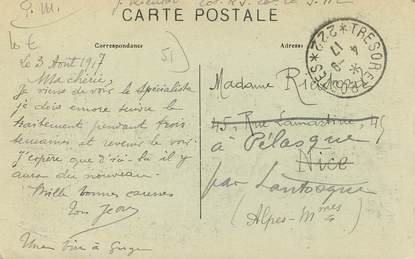 F. M.
CARTE POSTALE
Correspondance
Adresse
51
TRESOR ET POSTES * 222 *
4 -9 17
le 3 Août 1917
Ma chérie,
Je viens de voir le spécialiste
je dois encore suivre le
traitement pendant trois
semaines et revenir le voir.
J'espère que d'ici là il y
aura du nouveau.
Mille bonnes caresses
Ton Jean
Une bise à
Madame
45, Rue Lamartine, 45
à Pélasque
Nice
par Lantosque
(Alpes-Mmes)